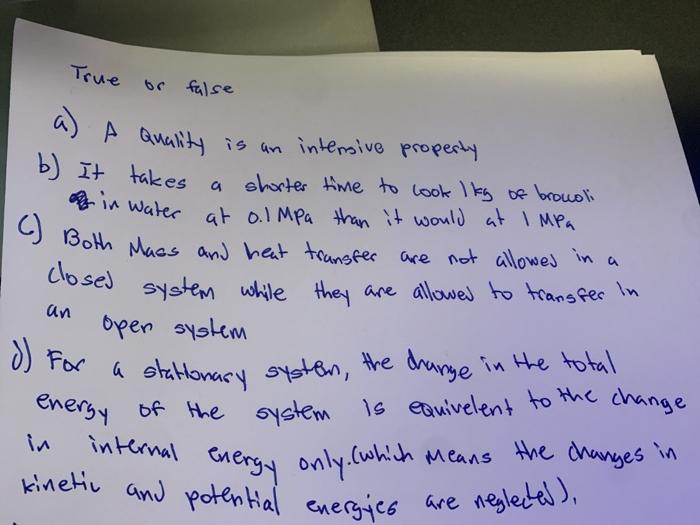 True or false
a) A Quality is an intensive property
b) It takes a shorter time to cook 1 kg of broccoli
in water at 0.1 MPa than it would at 1 MPa
c) Both Mass and heat transfer are not allowed in a
closed system while they are allowed to transfer in
an open system
d) For a stationary system, the change in the total
energy of the system is equivelent to the change
in internal energy only. (which means the changes in
kinetic and potential energyies are neglected).